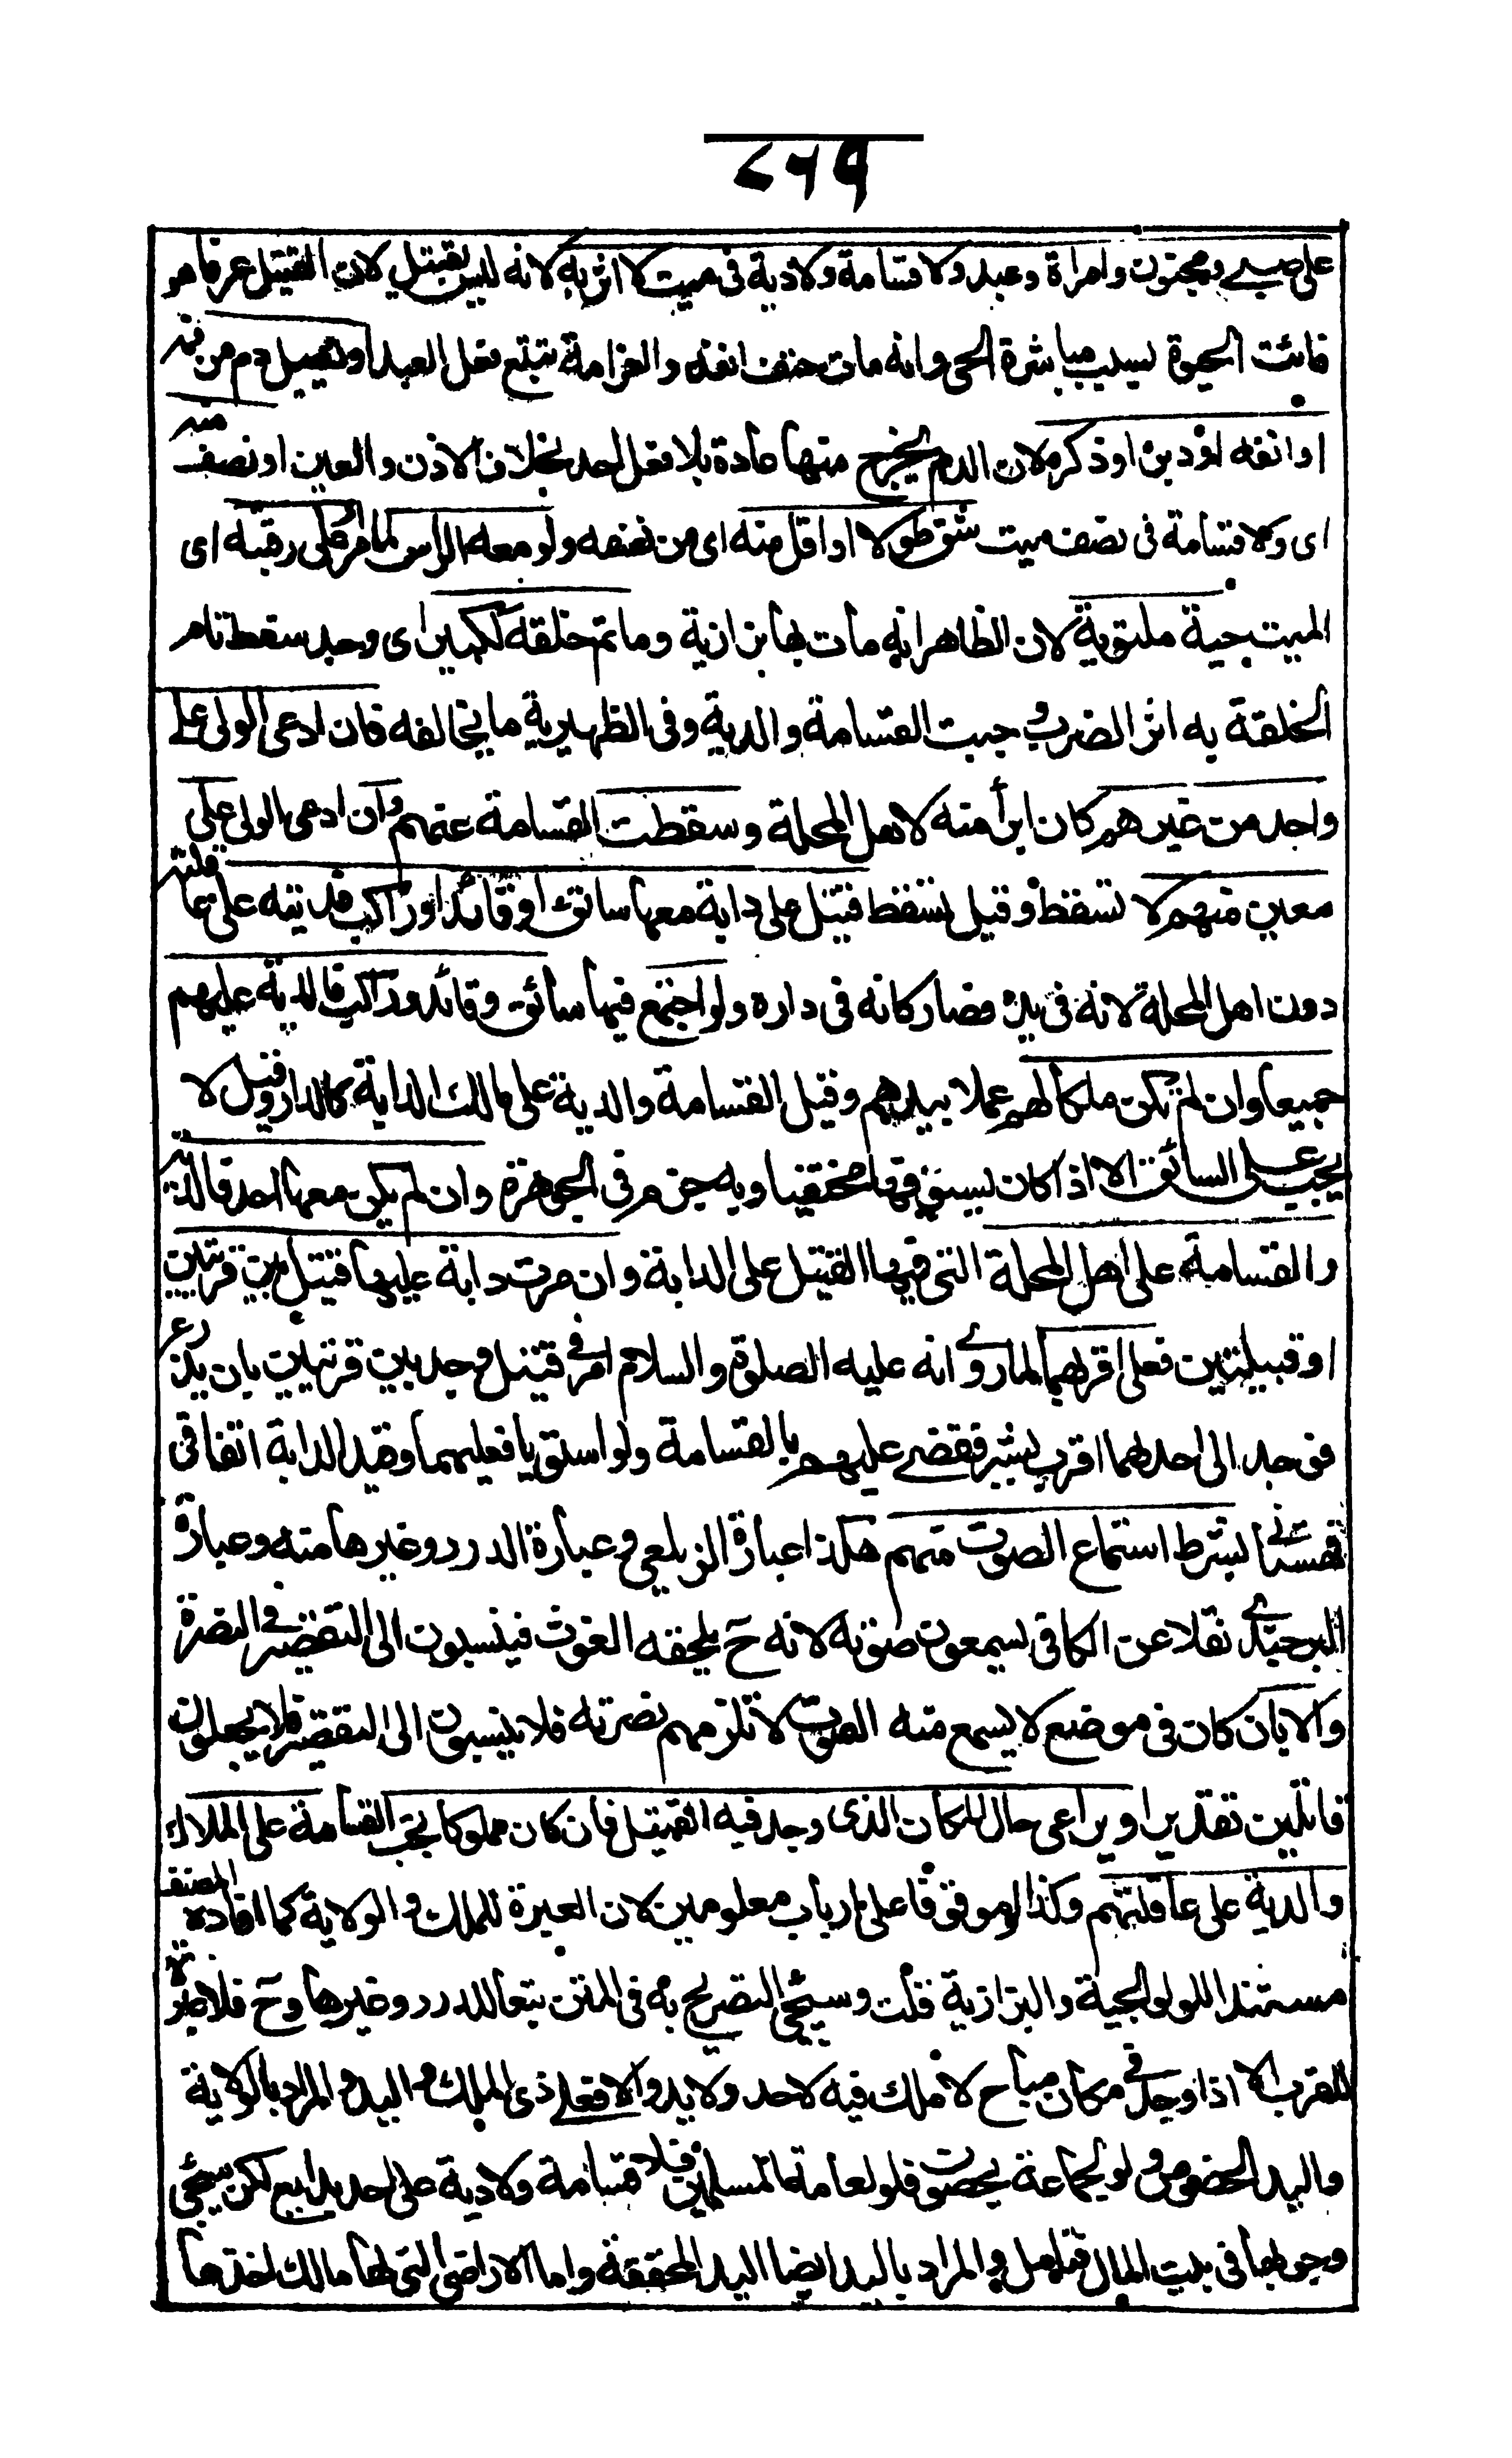 ٢٦٩
على صبي ومجنون وامراة وعبد ولا قسامة ولا دية في ميت لا اثر به لانه ليس بقتيل لان القتيل عرفا هو
فائت الحيوة بسبب مباشرة الحي وانه مات حتف انفه والغرامة تتبع فعل العبد او يسيل دم من فمه
او انفه او دبره او ذكره لان الدم يخرج منها عادة بلا فعل احد بخلاف الاذن والعين او نصف منه
اى ولا قسامة في نصف ميت شق طولا او اقل منه اى من نصفه ولو معه الراس لما مر او على رقبته اى
الميت حية ملتوية لان الظاهر انه مات بها بزازية وما تم خلقه ككبير اى وجد سقط تام
الخلقة به اثر الضرب وجبت القسامة والدية وفي الظهيرية ما يخالفه فان ادعى الولى على
واحد من غيرهم كان ابرأ منه لاهل المحلة وسقطت القسامة عنهم وان ادعى الولى على
معين منهم لا تسقط وقيل تسقط قتيل على دابة معها سائق او قائد او راكب فديته على عاقلته
دون اهل المحلة لانه في يده فصار كانه في داره ولو اجتمع فيها سائق وقائد وراكب فالدية عليهم
جميعا وان لم تكن ملكا لهم عملا بيدهم وقيل القسامة والدية على مالك الدابة كالدار وقيل لا
يجب على السائق الا اذا كان يسوقها مختفيا وبه جزم في الجوهرة وان لم يكن معها احد فالدية
والقسامة على اهل المحلة التي فيها القتيل على الدابة وان مرت دابة عليها قتيل بين قريتين
او قبيلتين فعلى اقربهما لما روى انه عليه الصلوة والسلام امر في قتيل وجد بين قريتين بان يذرع
فوجد الى احدهما اقرب بشبر فقضى عليهم بالقسامة ولو استويا فعليهما وقيد الدابة اتفاقي
قهستاني بشرط استماع الصوت منهم هكذا عبارة الزيلعي وعبارة الدرر وغيرها منه وعبارة
البرجندي نقلا عن الكافي يسمعون صوته لانه ح يلحقه الغوث فينسبون الى التقصير في النصرة
والا بان كان في موضع لا يسمع منه الصوت لا تلزمهم نصرته فلا ينسبون الى التقصير فلا يجعلون
قاتلين تقديرا ويراعى حال المكان الذى وجد فيه القتيل فان كان مملوكا تجب القسامة على الملاك
والدية على عاقلتهم وكذا لو موقوفا على ارباب معلومين لان العبرة للملك والولاية كما افاده المصنف
مستندا للولوالجية والبزازية قلت وسيجئ التصريح به في المتن تبعا للدرر وغيرها وح فلا عبرة
للقرب الا اذا وجد في مكان مباح لا ملك فيه لاحد ولا يد والا فعلى ذى الملك واليد والمراد بالولاية
واليد الخصوص ولو لجماعة يحصون فلو لعامة المسلمين فلا قسامة ولا دية على احد بدايع لكن سيجئ
وجوبها في بيت المال فتامل والمراد باليد ايضا اليد المحققة واما الاراضي التي لها مالك اخذها